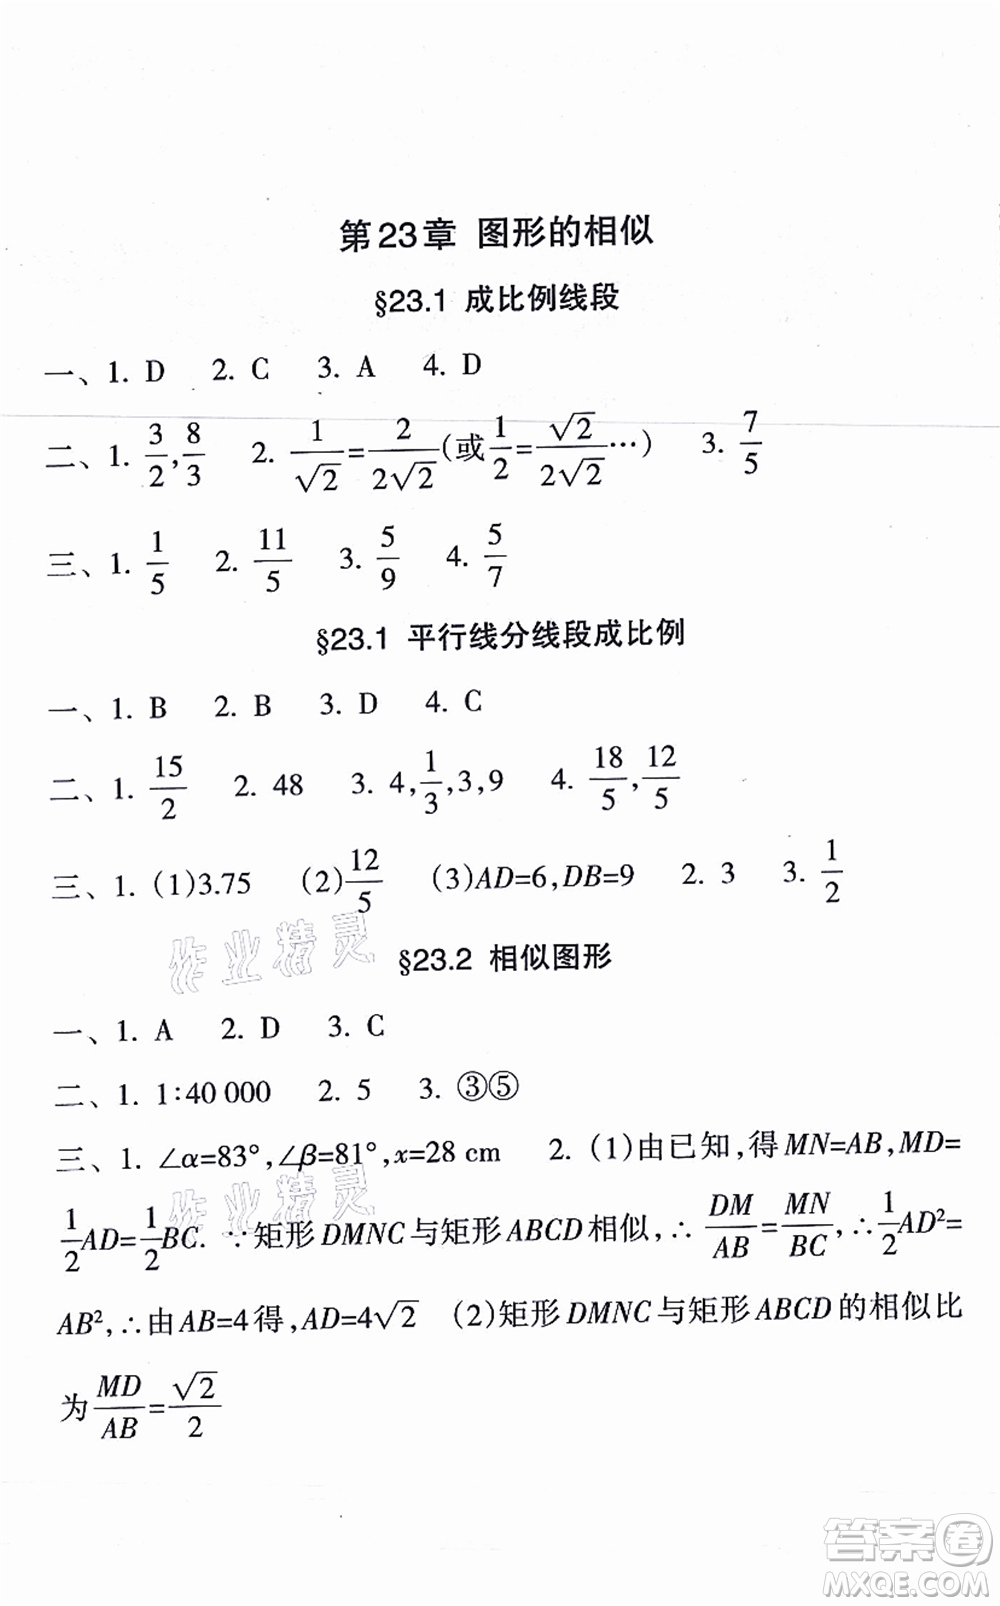 第23章 图形的相似
§23.1 成比例线段
一、1. D 2. C 3. A 4. D
二、1. 3/2, 8/3 2. 1/√2=2/(2√2)(或1/2=√2/(2√2)…) 3. 7/5
三、1. 1/5 2. 11/5 3. 5/9 4. 5/7
§23.1 平行线分线段成比例
一、1. B 2. B 3. D 4. C
二、1. 15/2 2. 48 3. 4, 1/3, 3, 9 4. 18/5, 12/5
三、1. (1)3.75 (2)12/5 (3)AD=6,DB=9 2. 3 3. 1/2
作业精灵
§23.2 相似图形
一、1. A 2. D 3. C
二、1. 1∶40 000 2. 5 3. ③⑤
三、1. ∠α=83°,∠β=81°,x=28 cm 2. (1)由已知,得MN=AB,MD=
作业精灵
1/2AD=1/2BC. ∵矩形DMNC与矩形ABCD相似,∴DM/AB=MN/BC,∴1/2AD²=
AB²,∴由AB=4得,AD=4√2 (2)矩形DMNC与矩形ABCD的相似比
为MD/AB=√2/2
答案卷
MXQE.COM